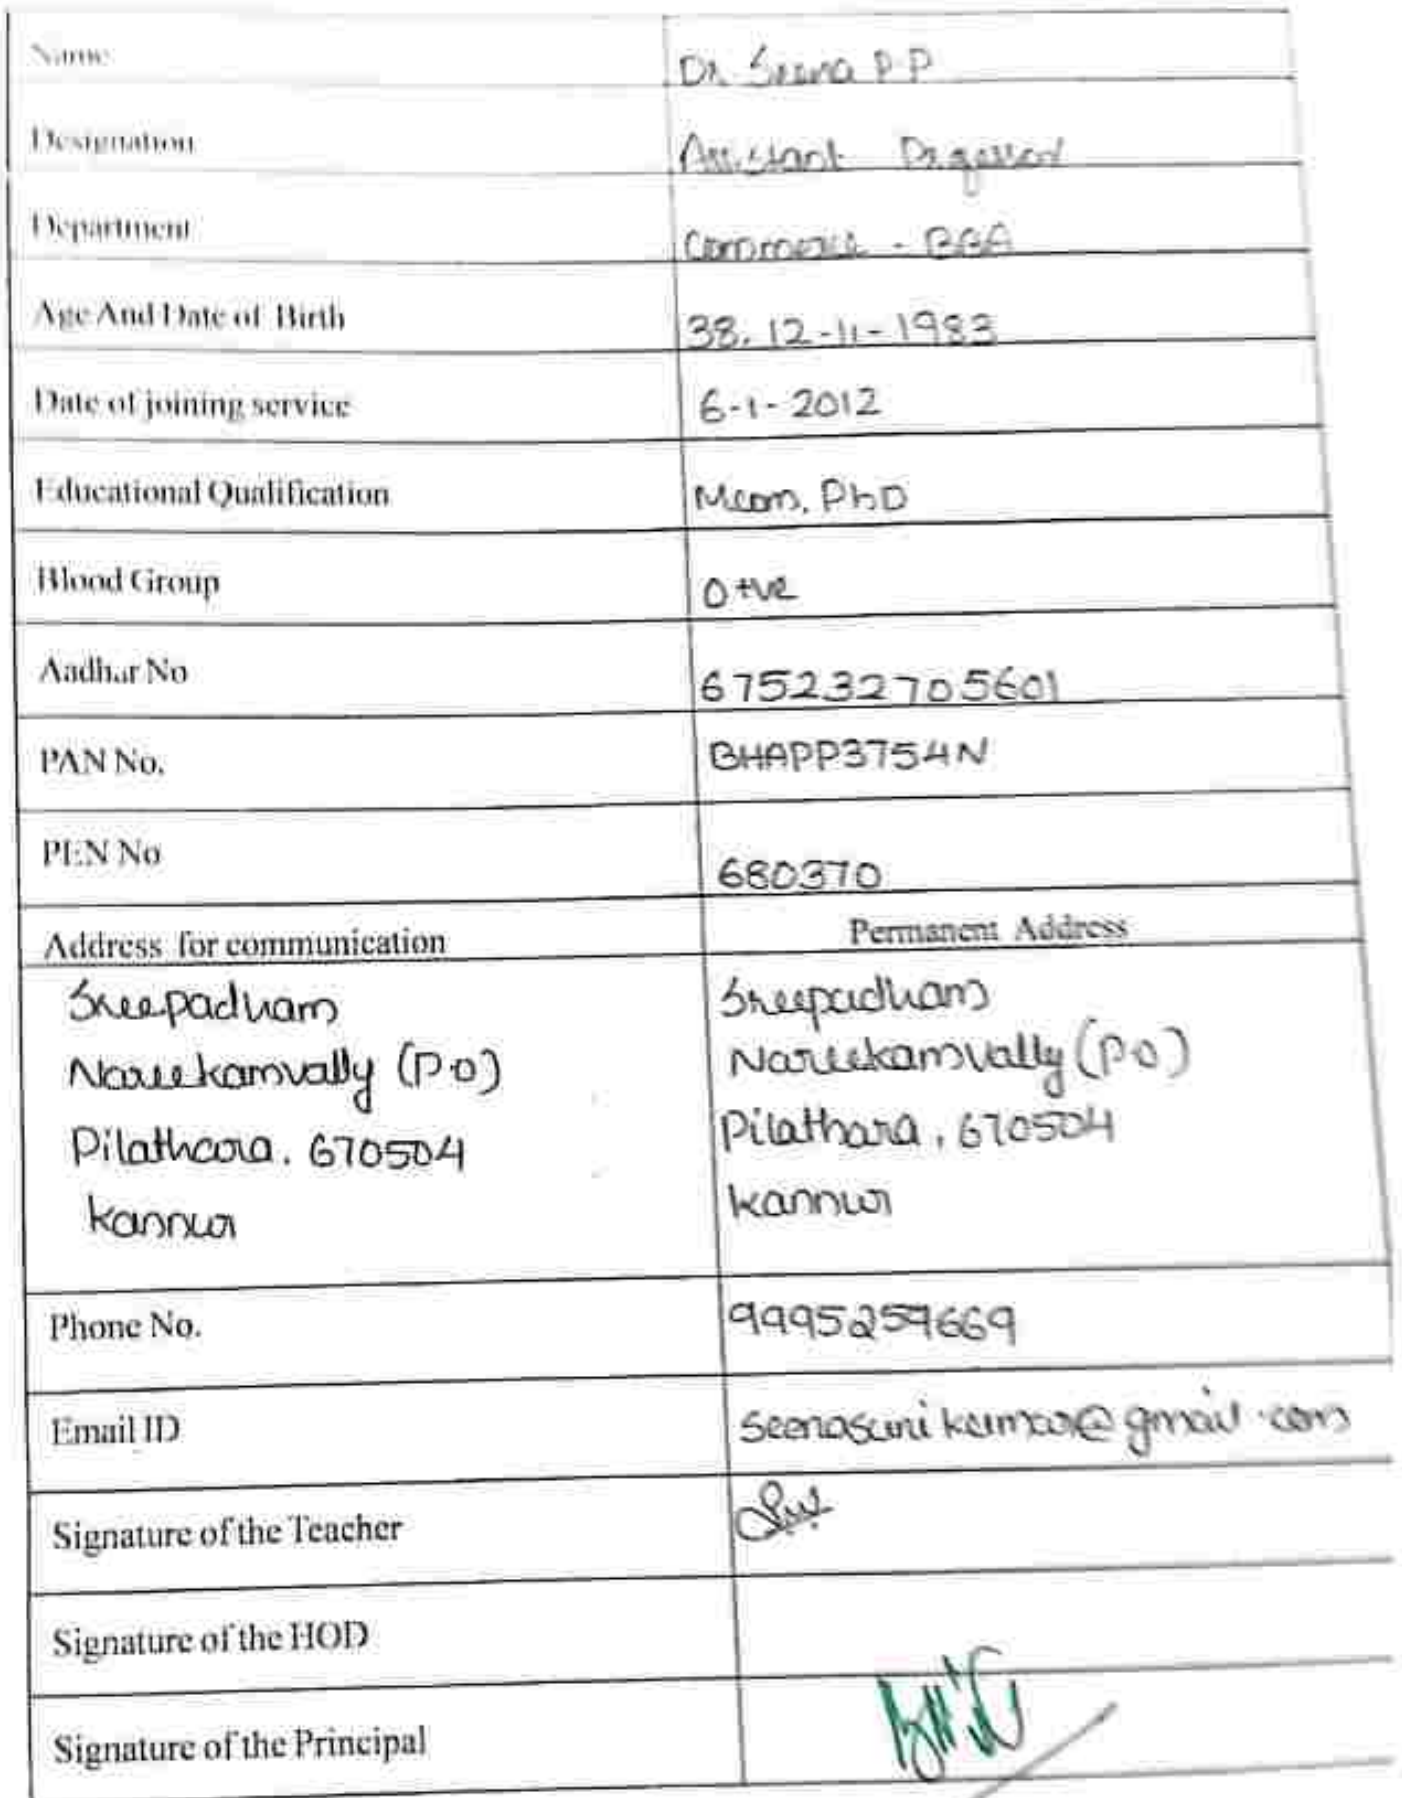 Name Dr. Seena P P
Designation Assistant Professor
Department Commerce - BBA
Age And Date of Birth 38, 12-11-1983
Date of joining service 6-1-2012
Educational Qualification Mcom, PhD
Blood Group O+ve
Aadhar No 675232705601
PAN No. BHAPP3754N
PEN No 680370
Address for communication Permanent Address
Sreepadham Sreepadham
Nareekamvally (P.O) Nareekamvally (P.O)
Pilathara, 670504 Pilathara, 670504
Kannur Kannur
Phone No. 9995259669
Email ID seenasunikumar@gmail.com
Signature of the Teacher
Signature of the HOD
Signature of the Principal